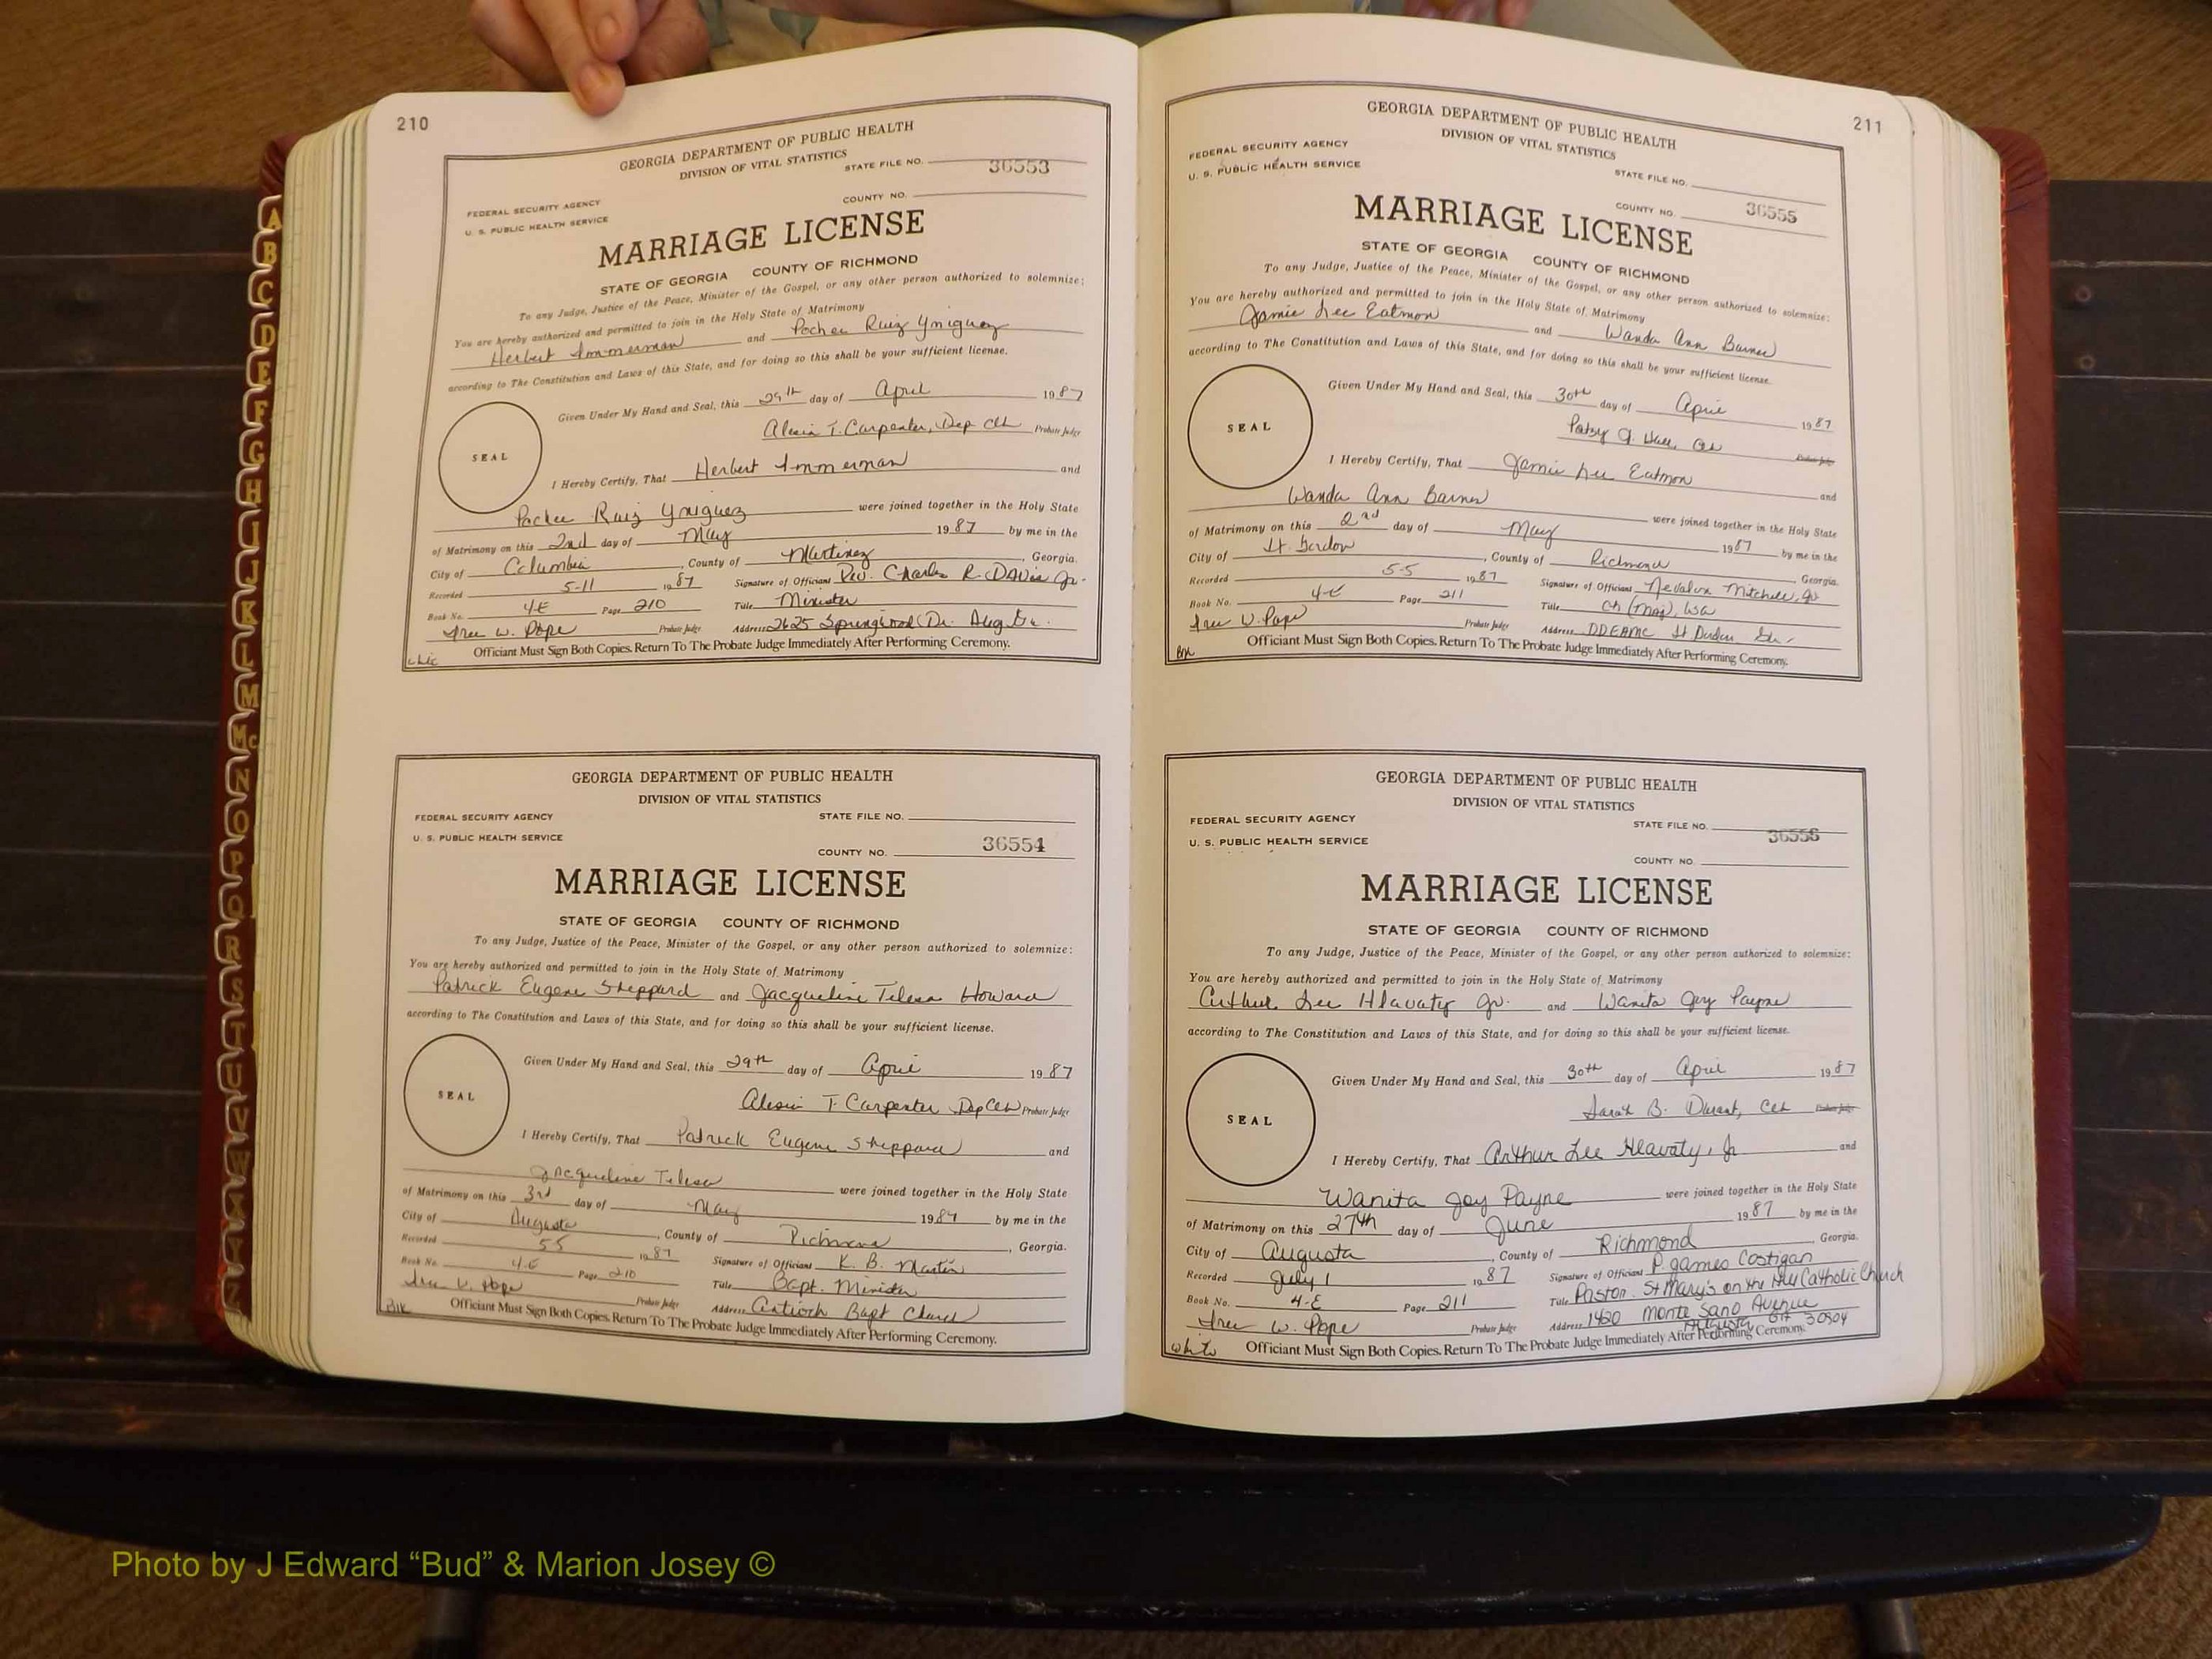 210
GEORGIA DEPARTMENT OF PUBLIC HEALTH
DIVISION OF VITAL STATISTICS
STATE FILE NO. 36553
COUNTY NO.
FEDERAL SECURITY AGENCY
U. S. PUBLIC HEALTH SERVICE
MARRIAGE LICENSE
STATE OF GEORGIA COUNTY OF RICHMOND
To any Judge, Justice of the Peace, Minister of the Gospel, or any other person authorized to solemnize:
You are hereby authorized and permitted to join in the Holy State of Matrimony
Herbert Immerman and Ruiz Yniguez
according to The Constitution and Laws of this State, and for doing so this shall be your sufficient license.
Given Under My Hand and Seal, this 29th day of April 1987
Alesia T. Carpenter, Dep Clk Probate Judge
SEAL
I Hereby Certify, That Herbert Immerman and
Ruiz Yniguez were joined together in the Holy State
of Matrimony on this 2nd day of May 1987 by me in the
City of Columbia, County of Martinez, Georgia.
Recorded 5-11 1987 Signature of Officiant Rev. Charles R. Davis Jr.
Book No. 4E Page 210 Title Minister
W. Pope Probate Judge Address 2625 Springwood Dr. Aug. Ga.
Officiant Must Sign Both Copies. Return To The Probate Judge Immediately After Performing Ceremony.
GEORGIA DEPARTMENT OF PUBLIC HEALTH
DIVISION OF VITAL STATISTICS
FEDERAL SECURITY AGENCY STATE FILE NO.
U. S. PUBLIC HEALTH SERVICE
COUNTY NO. 36554
MARRIAGE LICENSE
STATE OF GEORGIA COUNTY OF RICHMOND
To any Judge, Justice of the Peace, Minister of the Gospel, or any other person authorized to solemnize:
You are hereby authorized and permitted to join in the Holy State of Matrimony
Patrick Eugene Sheppard and Jacqueline Telesa Howard
according to The Constitution and Laws of this State, and for doing so this shall be your sufficient license.
Given Under My Hand and Seal, this 29th day of April 1987
Alesia T. Carpenter Dep Clk Probate Judge
SEAL
I Hereby Certify, That Patrick Eugene Sheppard and
Jacqueline Telesa were joined together in the Holy State
of Matrimony on this 3rd day of May 1987 by me in the
City of Augusta, County of Richmond, Georgia.
Recorded 5-5 1987 Signature of Officiant K. B. Martin
Book No. 4-E Page 210 Title Bapt. Minister
W. Pope Probate Judge Address Antioch Bapt Church
Blk Officiant Must Sign Both Copies. Return To The Probate Judge Immediately After Performing Ceremony.
211
GEORGIA DEPARTMENT OF PUBLIC HEALTH
DIVISION OF VITAL STATISTICS
FEDERAL SECURITY AGENCY
U. S. PUBLIC HEALTH SERVICE
STATE FILE NO.
COUNTY NO. 36555
MARRIAGE LICENSE
STATE OF GEORGIA COUNTY OF RICHMOND
To any Judge, Justice of the Peace, Minister of the Gospel, or any other person authorized to solemnize:
You are hereby authorized and permitted to join in the Holy State of Matrimony
Jamie Lee Eatmon and Wanda Ann Barnes
according to The Constitution and Laws of this State, and for doing so this shall be your sufficient license.
Given Under My Hand and Seal, this 30th day of April 1987
Patsy J. Hall, Clk Probate Judge
SEAL
I Hereby Certify, That Jamie Lee Eatmon and
Wanda Ann Barnes were joined together in the Holy State
of Matrimony on this 2nd day of May 1987 by me in the
City of Ft. Gordon, County of Richmond, Georgia.
Recorded 5-5 1987 Signature of Officiant Nevalon Mitchell, Jr
Book No. 4-E Page 211 Title Ch (Maj), USA
W. Pope Probate Judge Address DDEAMC Ft Gordon Ga.
Blk Officiant Must Sign Both Copies. Return To The Probate Judge Immediately After Performing Ceremony.
GEORGIA DEPARTMENT OF PUBLIC HEALTH
DIVISION OF VITAL STATISTICS
FEDERAL SECURITY AGENCY
U. S. PUBLIC HEALTH SERVICE
STATE FILE NO. 36556
COUNTY NO.
MARRIAGE LICENSE
STATE OF GEORGIA COUNTY OF RICHMOND
To any Judge, Justice of the Peace, Minister of the Gospel, or any other person authorized to solemnize:
You are hereby authorized and permitted to join in the Holy State of Matrimony
Arthur Lee Hlavaty Jr. and Wanita Joy Payne
according to The Constitution and Laws of this State, and for doing so this shall be your sufficient license.
Given Under My Hand and Seal, this 30th day of April 1987
Sarah B. Durant, Clk Probate Judge
SEAL
I Hereby Certify, That Arthur Lee Hlavaty, Jr and
Wanita Joy Payne were joined together in the Holy State
of Matrimony on this 27th day of June 1987 by me in the
City of Augusta, County of Richmond, Georgia.
Recorded July 1 1987 Signature of Officiant P James Costigan
Book No. 4-E Page 211 Title Pastor St Mary's on the Hill Catholic Church
W. Pope Probate Judge Address 1420 Monte Sano Avenue
Augusta GA 30904
white Officiant Must Sign Both Copies. Return To The Probate Judge Immediately After Performing Ceremony.
A
B
C
D
E
F
G
H
I
J
K
L
M
Mc
N
O
P
Q
R
S
T
U
V
W
Photo by J Edward “Bud” & Marion Josey ©